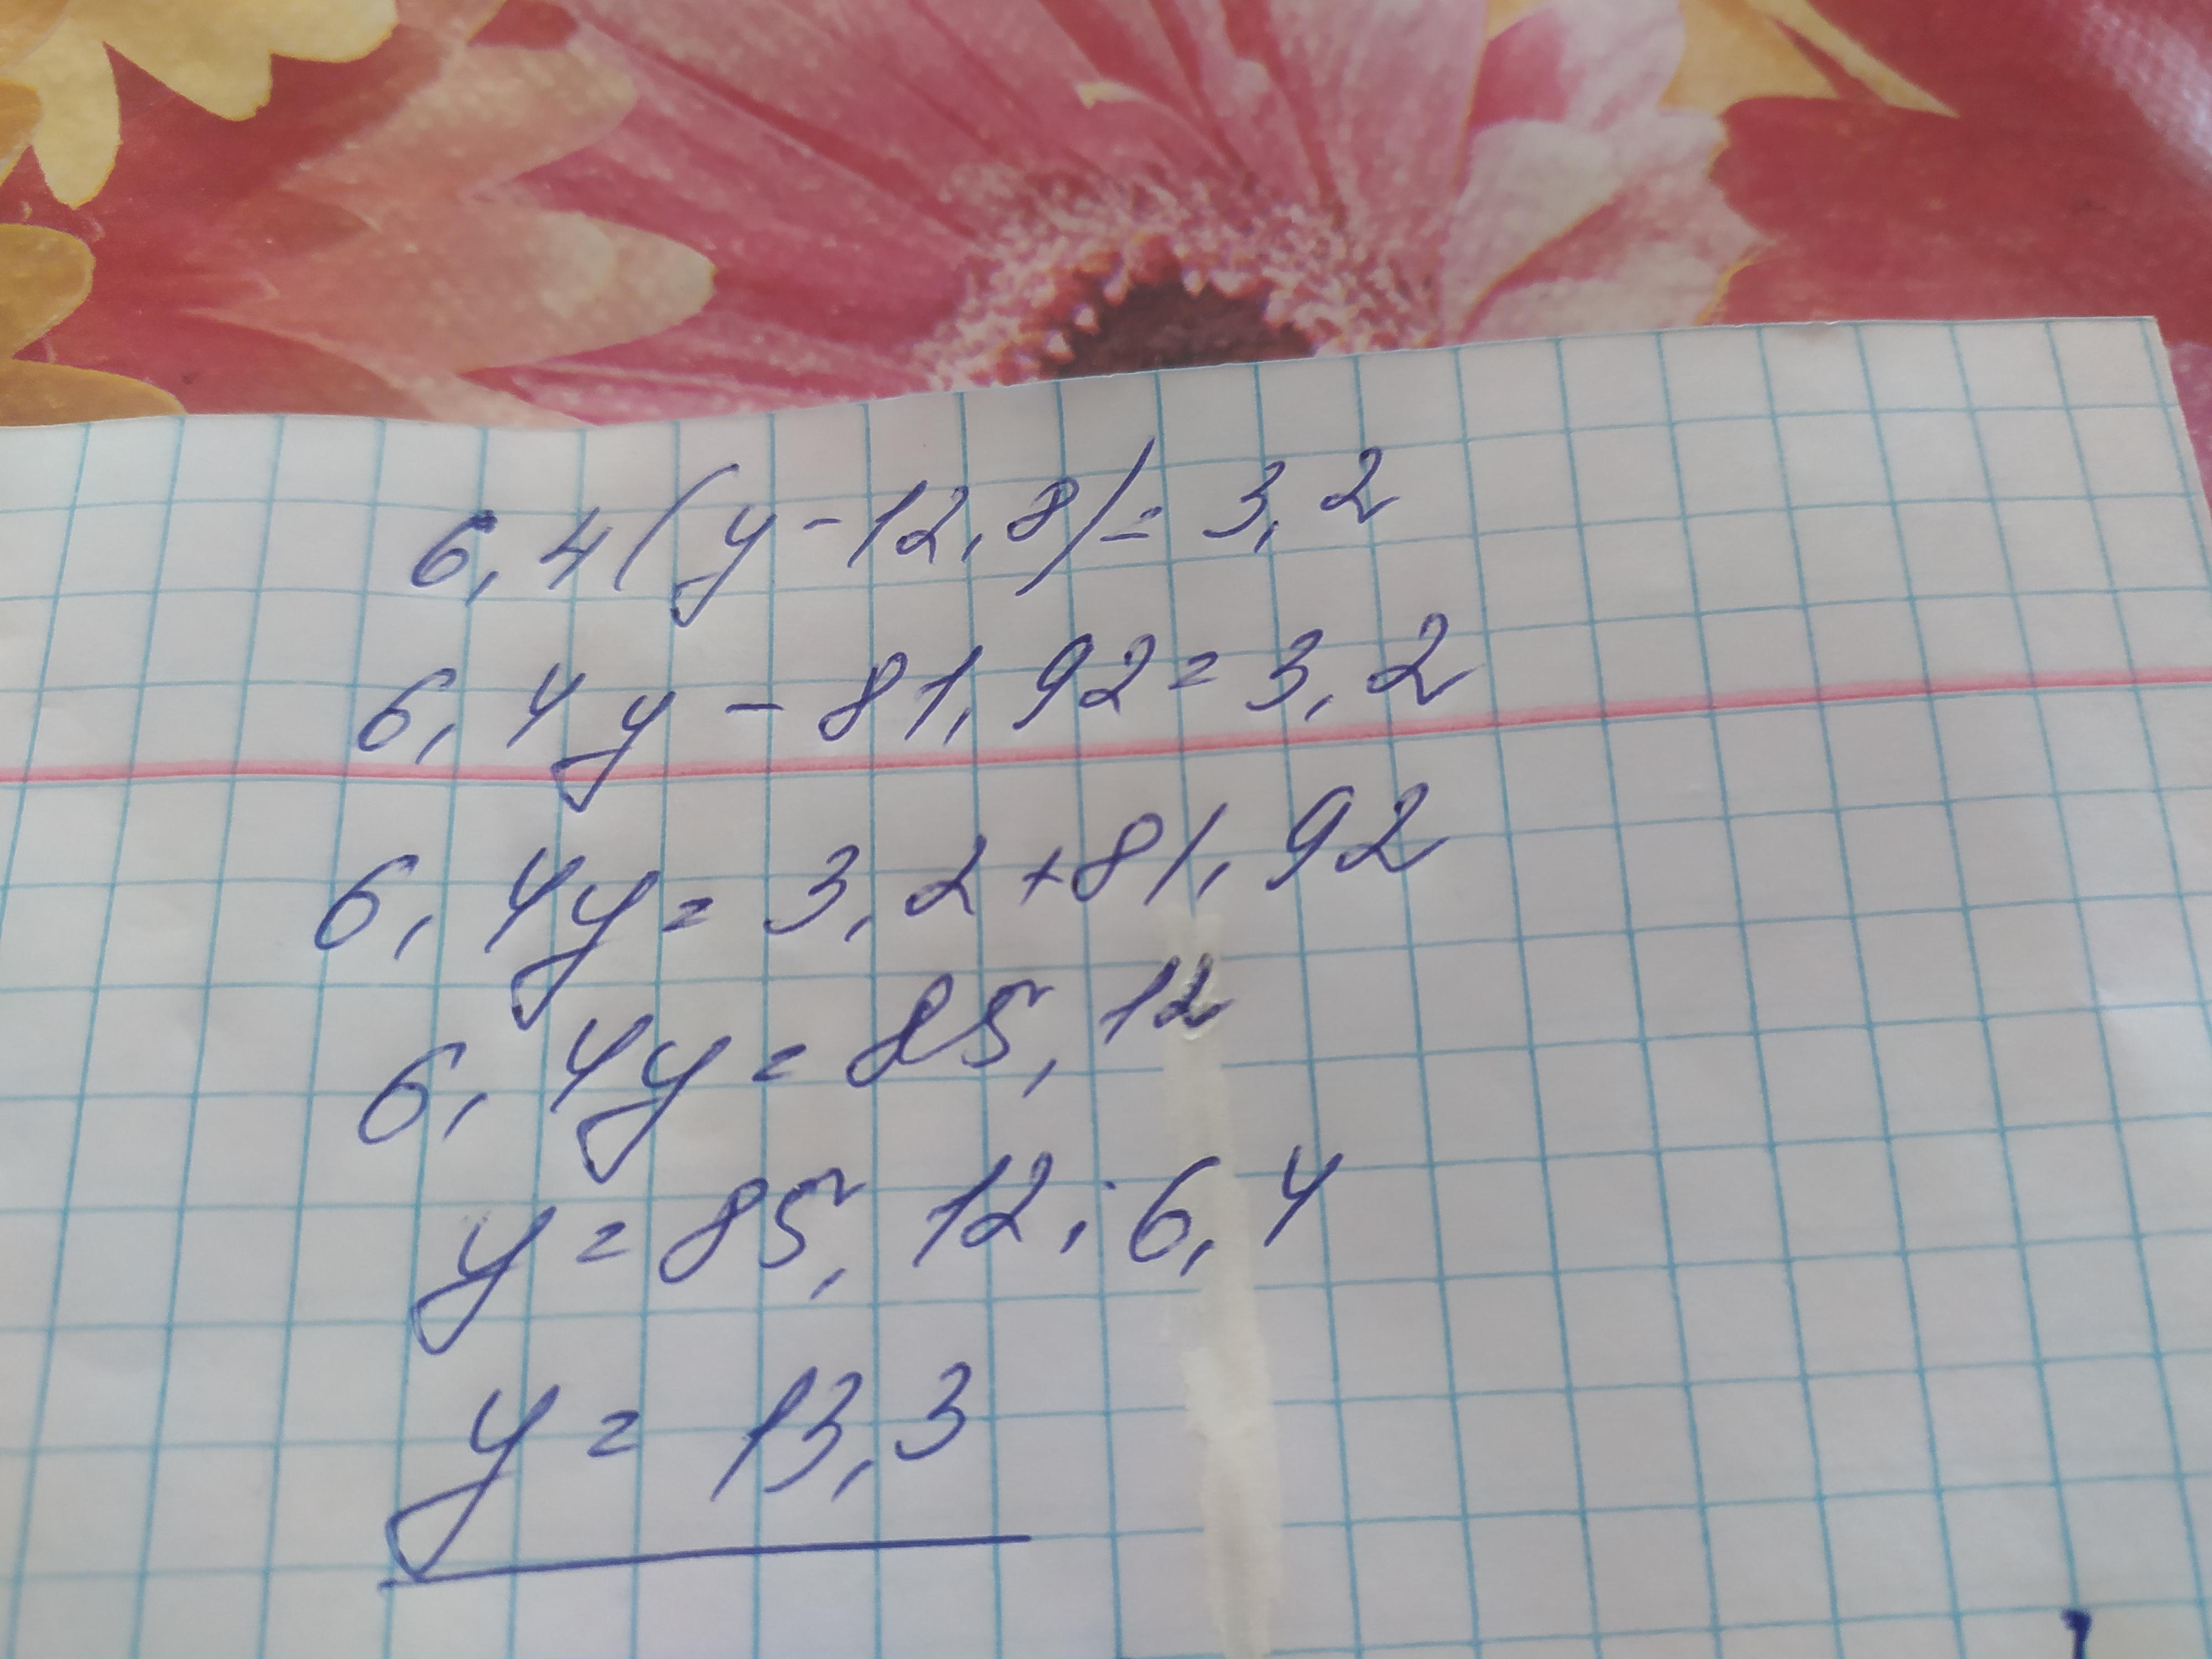 6,4(y-12,8)=3,2
6,4y-81,92=3,2
6,4y=3,2+81,92
6,4y=85,12
y=85,12:6,4
y=13,3